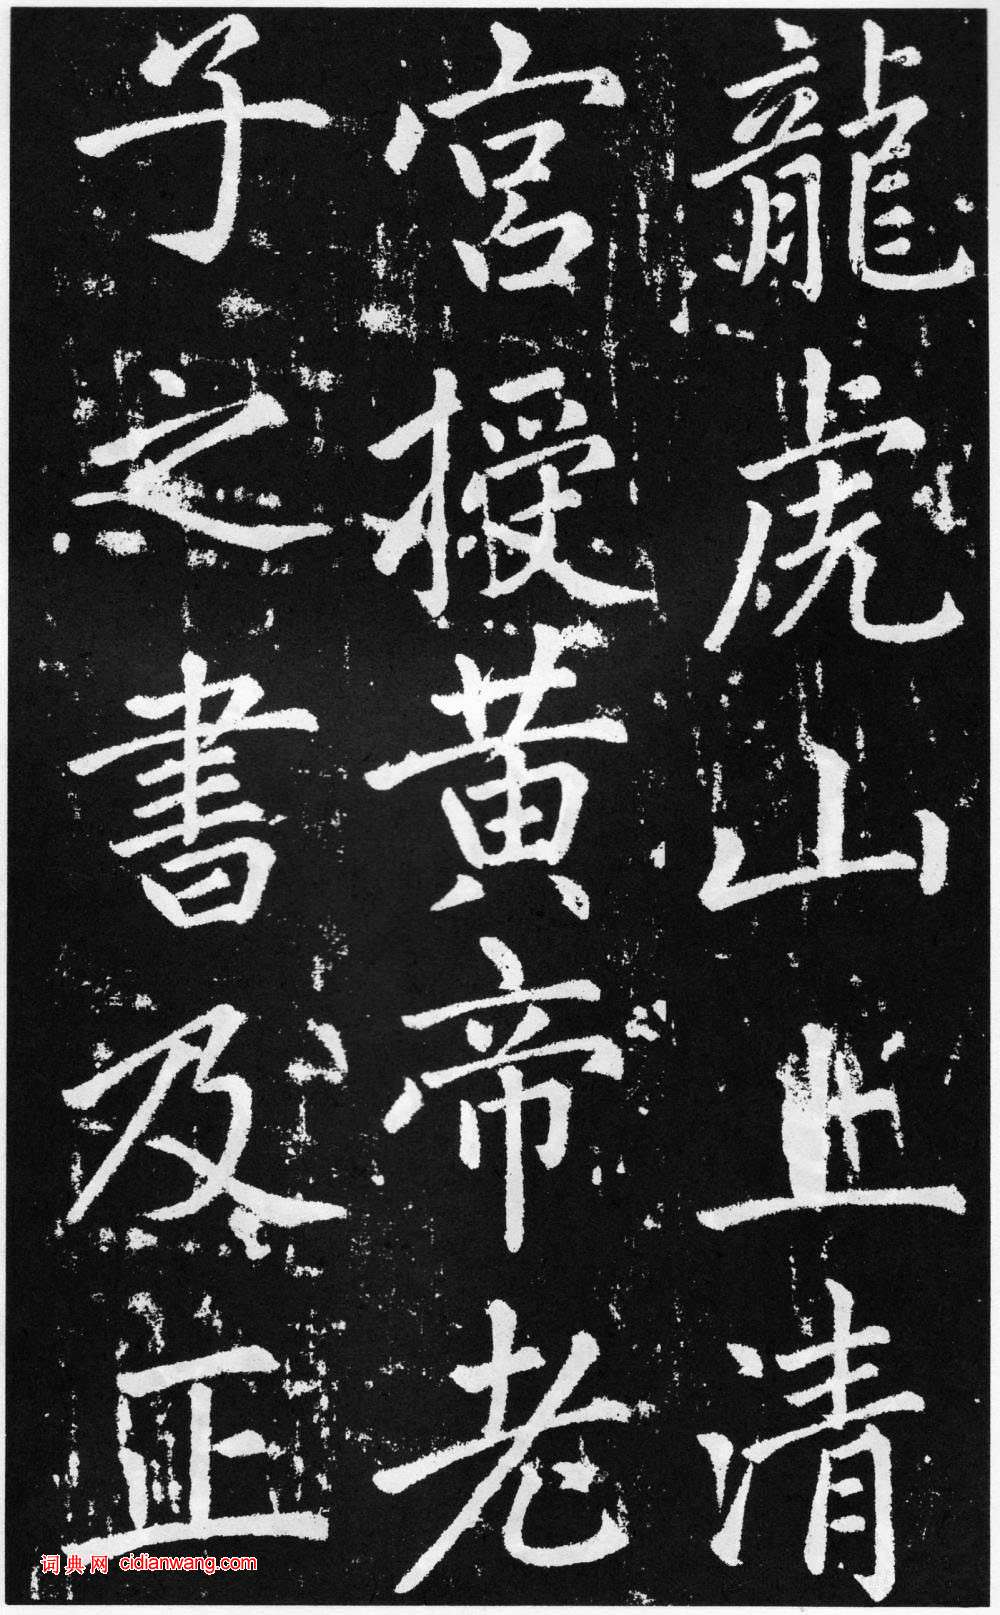 龍虎山上清
宮授黃帝老
子之書及正
词典网 cidianwang.com